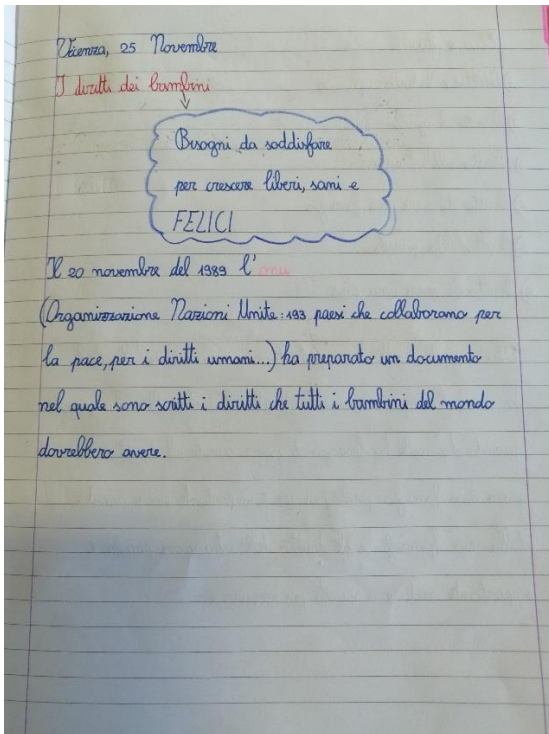 Vicenza, 25 Novembre
I diritti dei bambini
Bisogni da soddisfare
per crescere liberi, sani e
FELICI
Il 20 novembre del 1989 l'onu
(Organizzazione Nazioni Unite: 193 paesi che collaborano per
la pace, per i diritti umani...) ha preparato un documento
nel quale sono scritti i diritti che tutti i bambini del mondo
dovrebbero avere.